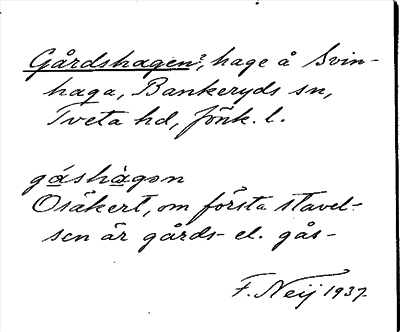 Gårdshagen?, hage å Svin-
haga, Bankeryds sn,
Tveta hd, Jönk. l.
gáshàgɘn
Osäkert, om första stavel-
sen är gårds- el. gås-
F. Neij 1937.